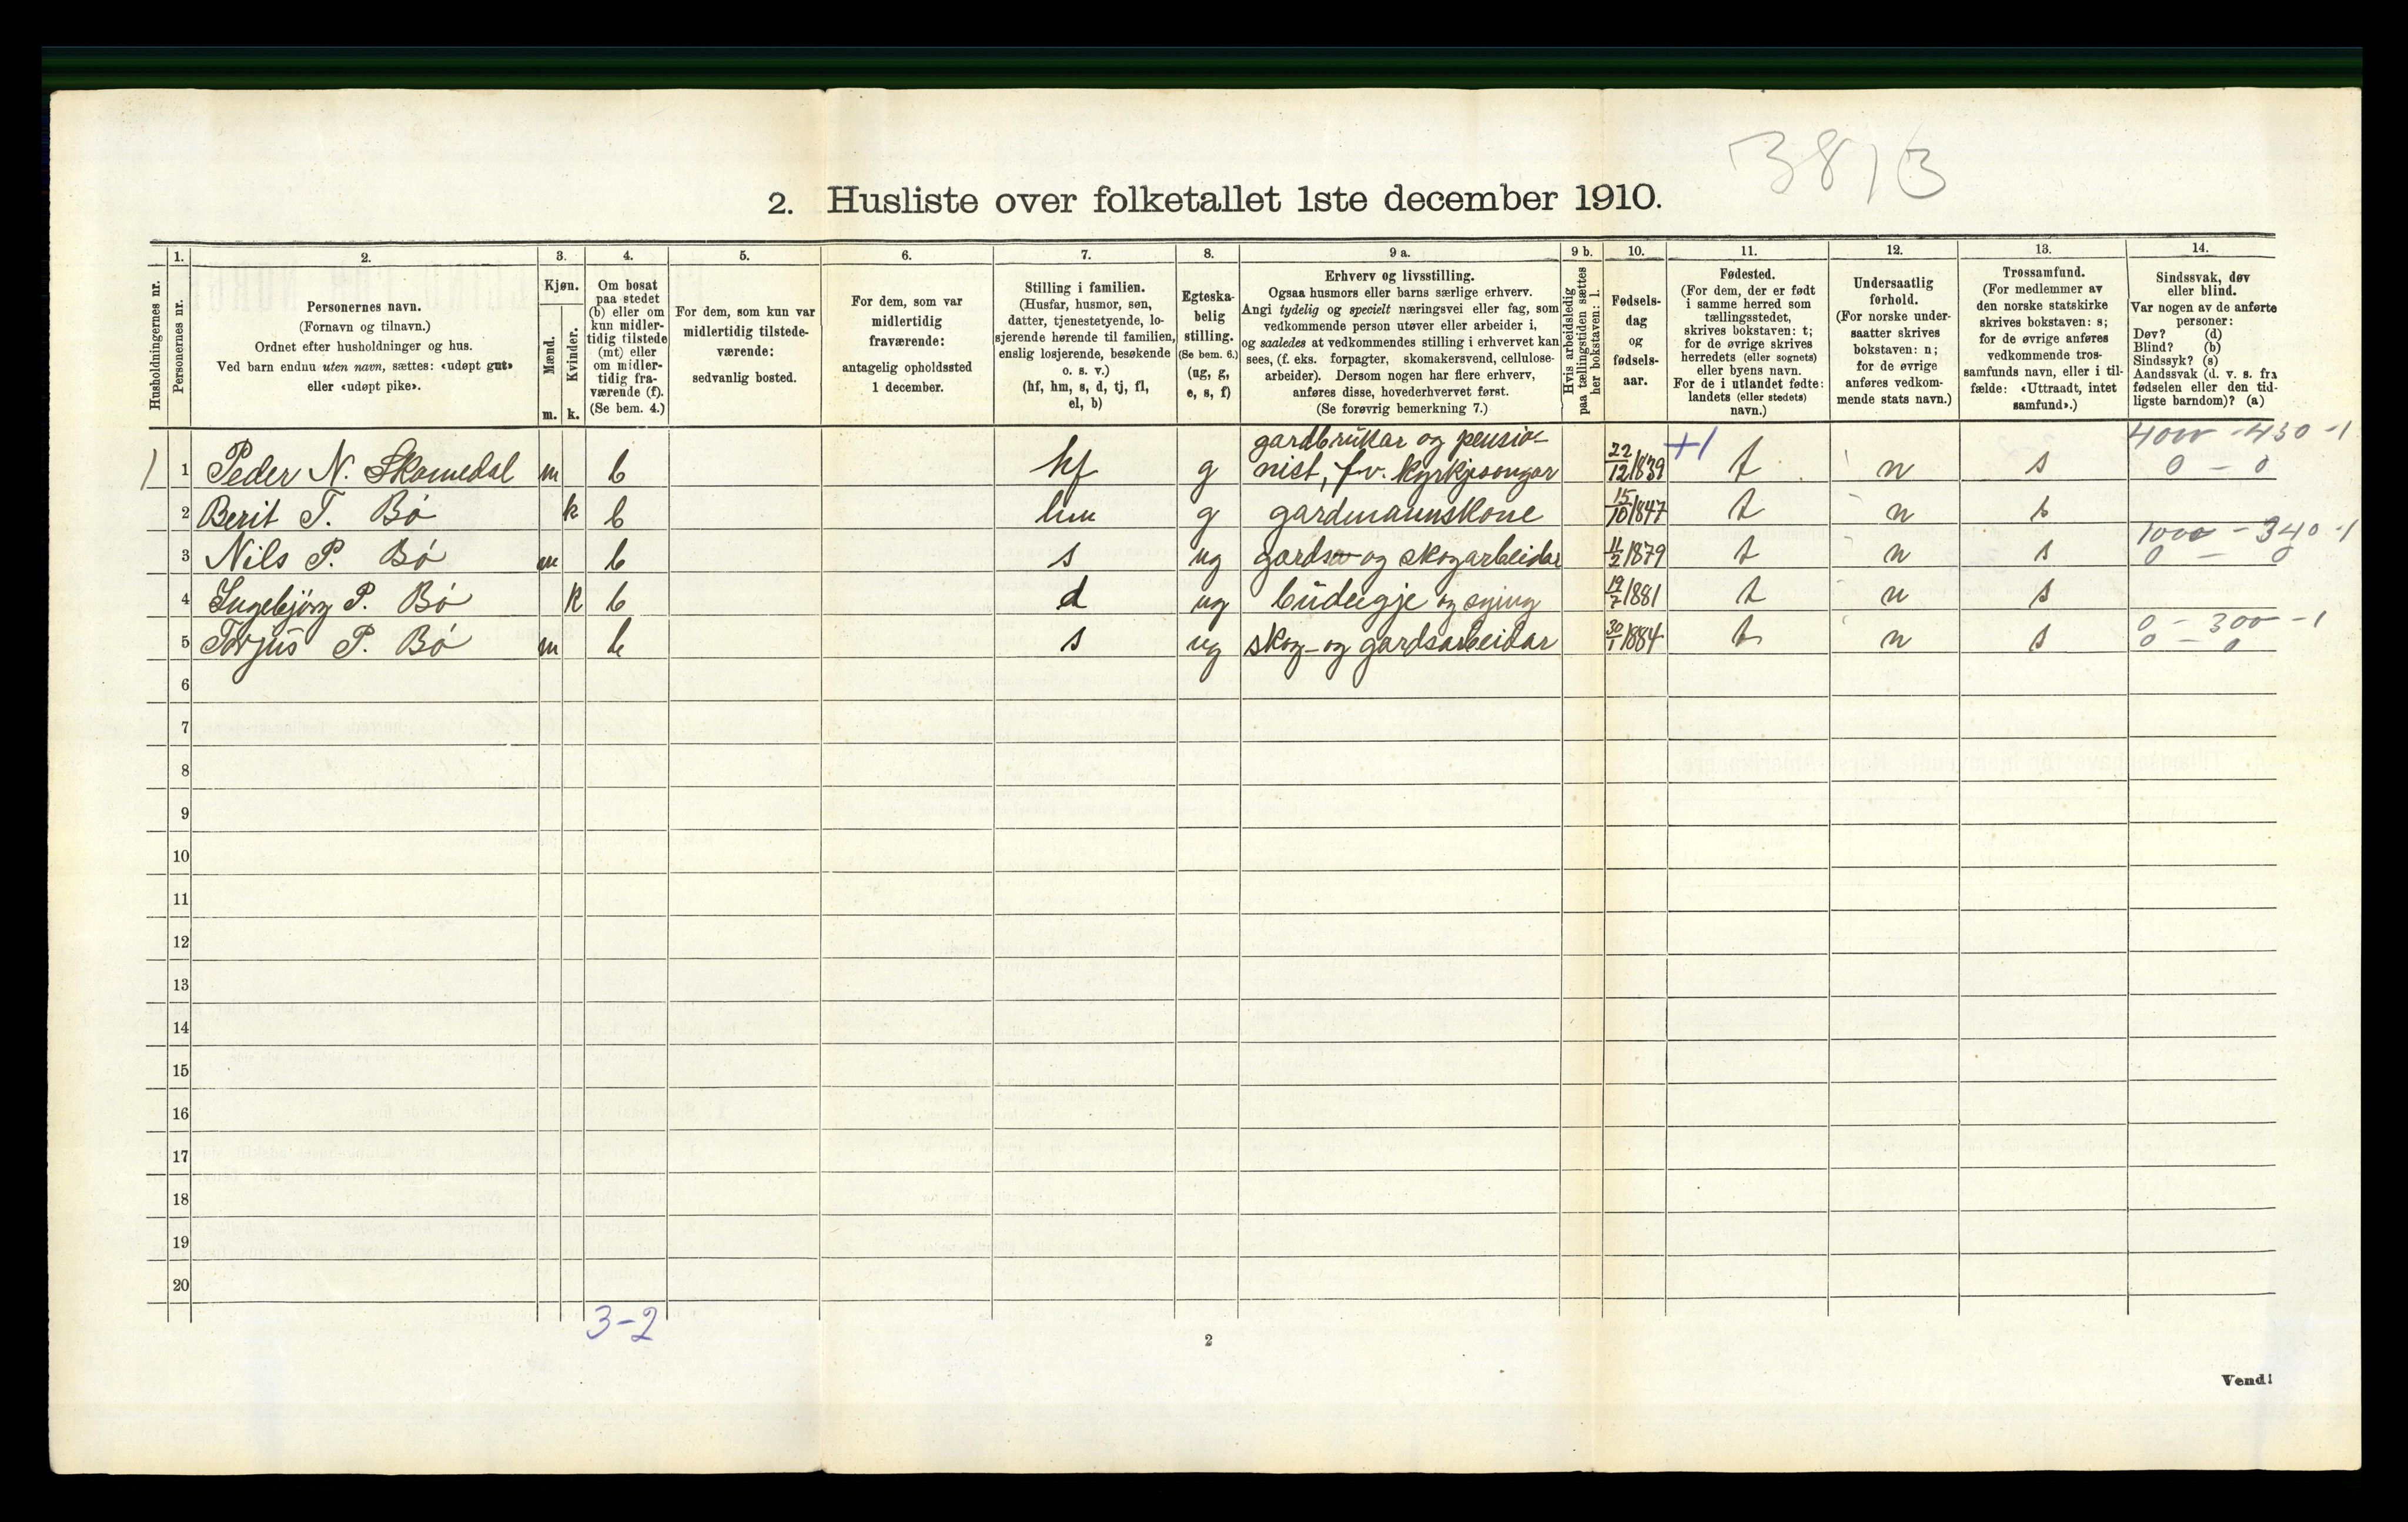 3813
2. Husliste over folketallet 1ste december 1910.
Husholdningernes nr.
1. Personernes nr.
2. Personernes navn.
(Fornavn og tilnavn.)
Ordnet efter husholdninger og hus.
Ved barn endnu uten navn, sættes: «udøpt gut»
eller «udøpt pike».
3. Kjøn.
Mænd. m.
Kvinder. k.
4. Om bosat
paa stedet
(b) eller om
kun midler-
tidig tilstede
(mt) eller
om midler-
tidig fra-
værende (f).
(Se bem. 4.)
5. For dem, som kun var
midlertidig tilstede-
værende:
sedvanlig bosted.
6. For dem, som var
midlertidig
fraværende:
antagelig opholdssted
1 december.
7. Stilling i familien.
(Husfar, husmor, søn,
datter, tjenestetyende, lo-
sjerende hørende til familien,
enslig losjerende, besøkende
o. s. v.)
(hf, hm, s, d, tj, fl,
el, b)
8. Egteska-
belig
stilling.
(Se bem. 6.)
(ug, g,
e, s, f)
9 a. Erhverv og livsstilling.
Ogsaa husmors eller barns særlige erhverv.
Angi tydelig og specielt næringsvei eller fag, som
vedkommende person utøver eller arbeider i,
og saaledes at vedkommendes stilling i erhvervet kan
sees, (f. eks. forpagter, skomakersvend, cellulose-
arbeider). Dersom nogen har flere erhverv,
anføres disse, hovederhvervet først.
(Se forøvrig bemerkning 7.)
9 b. Hvis arbeidsledig
paa tællingstiden sættes
her bokstaven: l.
10. Fødsels-
dag
og
fødsels-
aar.
11. Fødested.
(For dem, der er født
i samme herred som
tællingsstedet,
skrives bokstaven: t;
for de øvrige skrives
herredets (eller sognets)
eller byens navn.
For de i utlandet fødte:
landets (eller stedets)
navn.)
12. Undersaatlig
forhold.
(For norske under-
saatter skrives
bokstaven: n;
for de øvrige
anføres vedkom-
mende stats navn.)
13. Trossamfund.
(For medlemmer av
den norske statskirke
skrives bokstaven: s;
for de øvrige anføres
vedkommende tros-
samfunds navn, eller i til-
fælde: «Uttraadt, intet
samfund».)
14. Sindssvak, døv
eller blind.
Var nogen av de anførte
personer:
Døv? (d)
Blind? (b)
Sindssyk? (s)
Aandssvak (d. v. s. fra
fødselen eller den tid-
ligste barndom)? (a)
gardbrukar og pensio- +1 4000 -430 -1
1 1 Peder N. Skomedal m b hf g nist, fv. kyrkjesongar 22/12 1839 t n s 0 - 0
2 Berit T. Bó k b hm g gardmannskone 15/10 1847 t n s
1000 - 340 -1
3 Nils P. Bó m b s ug gards- og skogarbeidar 11/2 1879 t n s 0 - 0
4 Ingebjörg P. Bó k b d ug budeigje og sying 19/7 1881 t n s
0 - 300 -1
5 Torjus P. Bó m b s ug skog- og gardsarbeidar 30/1 1884 t n s 0 - 0
6
7
8
9
10
11
12
13
14
15
16
17
18
19
20
3-2
2
Vend!